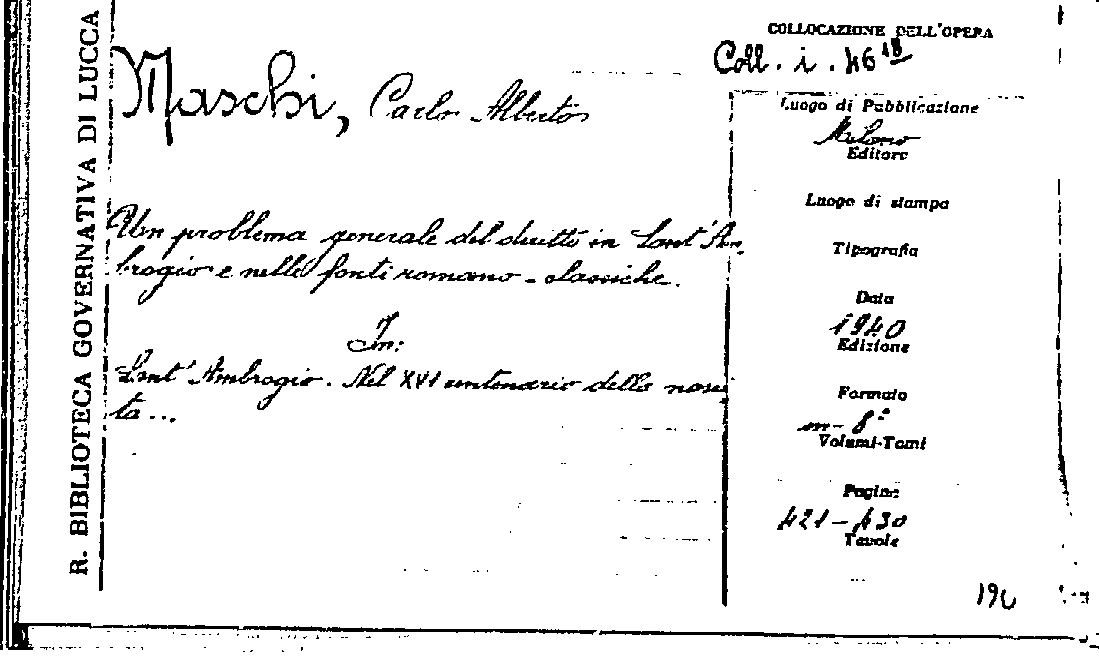 R. BIBLIOTECA GOVERNATIVA DI LUCCA
Maschi, Carlo Alberto
Un problema generale del diritto in Sant'Am
brogio e nelle fonti romano-classiche.
In:
Sant'Ambrogio. Nel XVI centenario della nasci
ta...
COLLOCAZIONE DELL'OPERA
Coll. i. 46 18
Luogo di Pubblicazione
Milano
Editore
Luogo di stampa
Tipografia
Data
1940
Edizione
Formato
m-8°
Volumi-Tomi
Pagine
421-430
Tavole